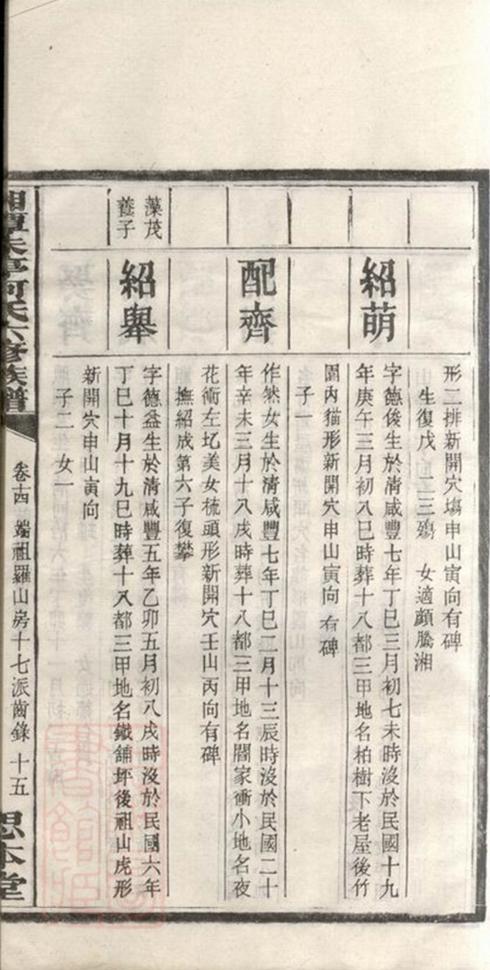 形二排新開穴塲申山寅向有碑
生復戊 二三殤 女適顏騰湘
紹萌
字德俊生於清咸豐七年丁巳三月初七未時沒於民國十九
年庚午三月初八巳時葬十八都三甲地名柏樹下老屋後竹
園內猫形新開穴申山寅向 有碑
子一
配齊
作然女生於清咸豐七年丁巳二月十三辰時沒於民國二十
年辛未三月十八戌時葬十八都三甲地名閻家衝小地名夜
花衖左圪美女梳頭形新開穴壬山丙向有碑
撫紹成第六子復攀
藻茂
養子
紹舉
字德益生於清咸豐五年乙卯五月初八戌時沒於民國六年
丁巳十月十九巳時葬十八都三甲地名鐵舖坪後祖山虎形
新開穴申山寅向
子二 女一
湘潭朱亭何氏六修族譜
卷十四 端祖羅山房十七派齒錄 十五
思本堂